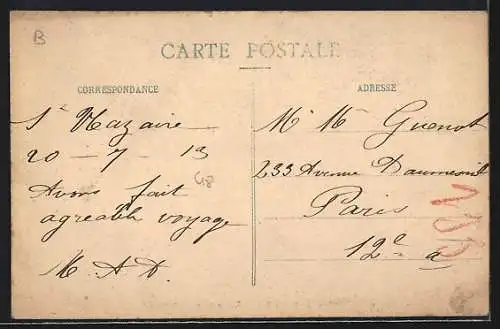 B
CARTE POSTALE
CORRESPONDANCE
St Nazaire
20 - 7 - 13
G8
Avons fait
agreable voyage
M. A D.
ADRESSE
Mr Me Guenot
233 Avenue Daumesnil
Paris
12e a